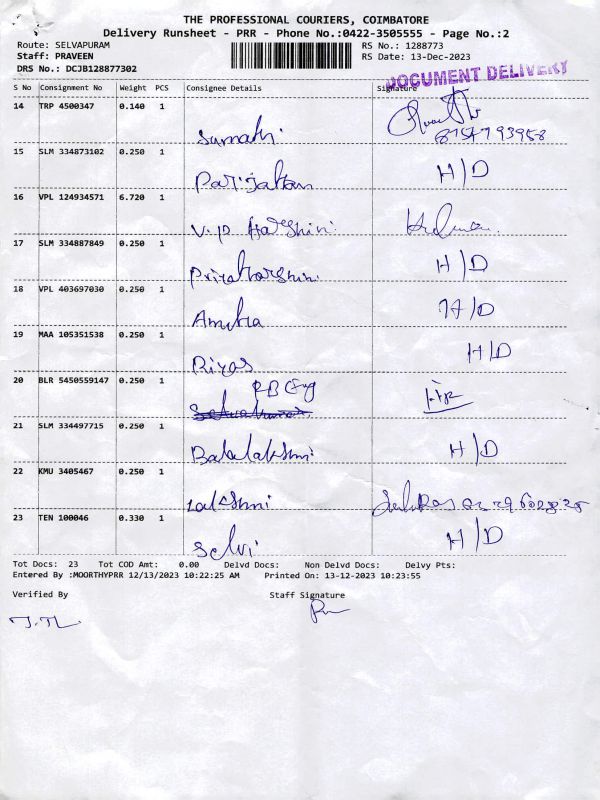 THE PROFESSIONAL COURIERS, COIMBATORE
Delivery Runsheet - PRR - Phone No.:0422-3505555 - Page No.:2
Route: SELVAPURAM RS No.: 1288773
Staff: PRAVEEN RS Date: 13-Dec-2023
DRS No.: DCJB128877302
DOCUMENT DELIVERY
S No Consignment No Weight PCS Consignee Details Signature
14 TRP 4500347 0.140 1
Sumathi
15 SLM 334873102 0.250 1
H/D
16 VPL 124934571 6.720 1
V.P Harshini
17 SLM 334887849 0.250 1
Priyadharshini H/D
18 VPL 403697030 0.250 1
Amitha H/D
19 MAA 105351538 0.250 1
Riyas H/D
20 BLR 5450559147 0.250 1
21 SLM 334497715 0.250 1
Balalakshmi H/D
22 KMU 3405467 0.250 1
Lakshmi
23 TEN 100046 0.330 1
Selvi H/D
Tot Docs: 23 Tot COD Amt: 0.00 Delvd Docs: Non Delvd Docs: Delvy Pts:
Entered By :MOORTHYPRR 12/13/2023 10:22:25 AM Printed On: 13-12-2023 10:23:55
Verified By Staff Signature